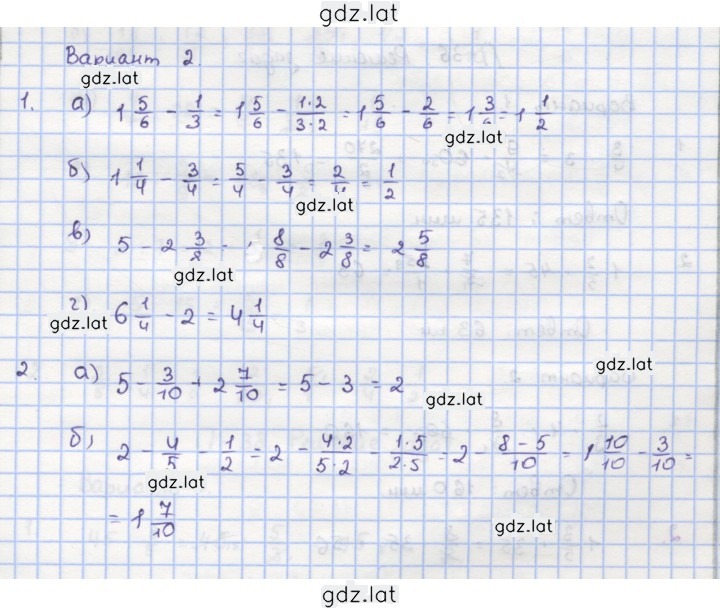 gdz.lat
Вариант 2.
gdz.lat
1. а) 1 5/6 - 1/3 = 1 5/6 - 1·2/3·2 = 1 5/6 - 2/6 = 1 3/6 = 1 1/2
gdz.lat
б) 1 1/4 - 3/4 = 5/4 - 3/4 = 2/4 = 1/2
gdz.lat
в) 5 - 2 3/8 = 8/8 - 2 3/8 = 2 5/8
gdz.lat
г) 6 1/4 - 2 = 4 1/4
gdz.lat
gdz.lat
2. а) 5 - 3/10 + 2 7/10 = 5 - 3 = 2
gdz.lat
б) 2 - 4/5 - 1/2 = 2 - 4·2/5·2 - 1·5/2·5 = 2 - 8-5/10 = 1 10/10 - 3/10 =
gdz.lat
= 1 7/10
gdz.lat
gdz.lat